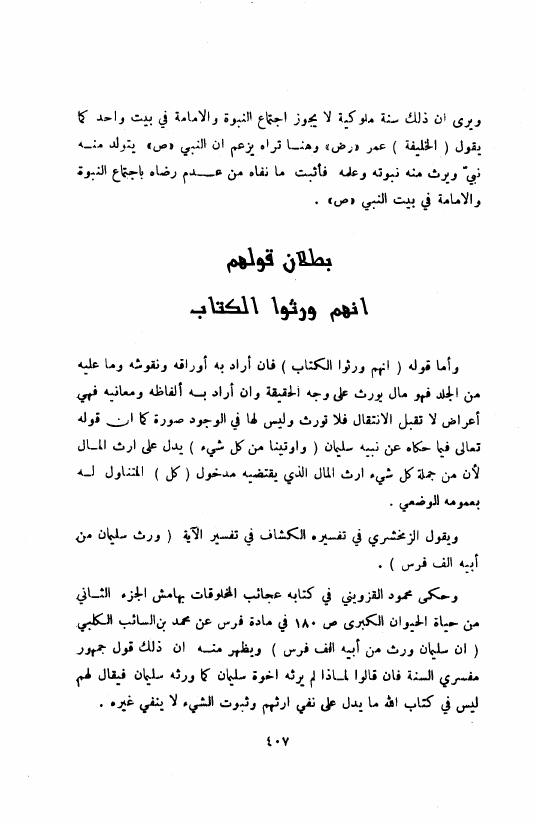 ويرى ان ذلك سنة ملوكية لا يجوز اجتماع النبوة والامامة في بيت واحد كما
يقول ( الخليفة ) عمر «رض» وهنـا تراه يزعم ان النبي «ص» يتولد منـه
نبيّ ويرث منه نبوته وعلمه فأثبت ما نفاه من عـدم رضاه باجتماع النبوة
والامامة في بيت النبي «ص» .
بطلان قولهم
انهم ورثوا الكتاب
وأما قوله ( انهم ورثوا الكتاب ) فان أراد به أوراقه ونقوشه وما عليه
من الجلد فهو مال يورث على وجه الحقيقة وان أراد بـه ألفاظه ومعانيه فهي
أعراض لا تقبل الانتقال فلا تورث وليس لها في الوجود صورة كما ان قوله
تعالى فيما حكاه عن نبيه سليمان ( واوتينا من كل شيء ) يدل على ارث المـال
لأن من جملة كل شيء ارث المال الذي يقتضيه مدخول ( كل ) المتناول لـه
بعمومه الوضعي .
ويقول الزمخشري في تفسيره الكشاف في تفسير الآية ( ورث سليمان من
أبيه الف فرس ) .
وحكى محمود القزويني في كتابه عجائب المخلوقات بهامش الجزء الثـاني
من حياة الحيوان الكبرى ص ١٨٠ في مادة فرس عن محمد بن السائب الكلبي
( ان سليمان ورث من أبيه الف فرس ) ويظهر منـه ان ذلك قول جمهور
مفسري السنة فان قالوا لمـاذا لم يرثه اخوة سليمان كما ورثه سليمان فيقال لهم
ليس في كتاب الله ما يدل على نفي ارثهم وثبوت الشيء لا ينفي غيره .
٤٠٧